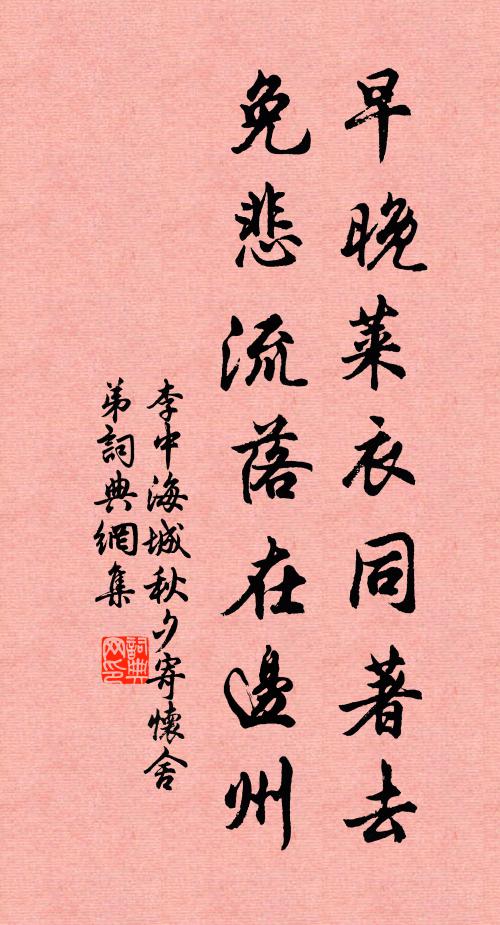 早晚萊衣同著去
免悲流落在邊州
李中海城秋夕寄懷舍
弟詞典網集
詞典
网印